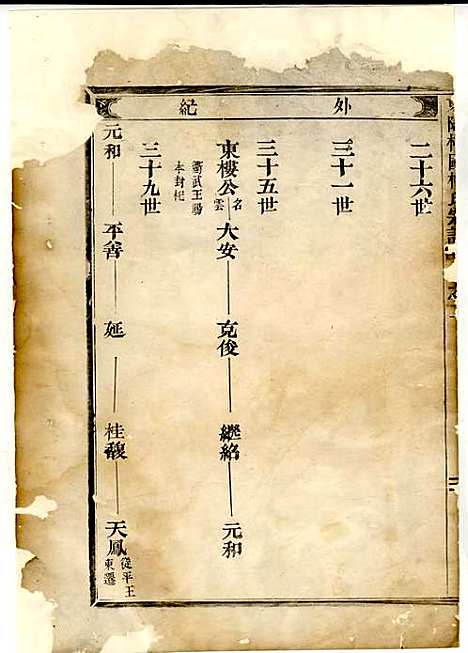 外紀
二十六世
三十一世
三十五世
東樓公 名雲 大安 克俊 繼紹 元和
武王
封杞
三十九世
元和 平善 延 桂馥 天鳳 從平王東遷